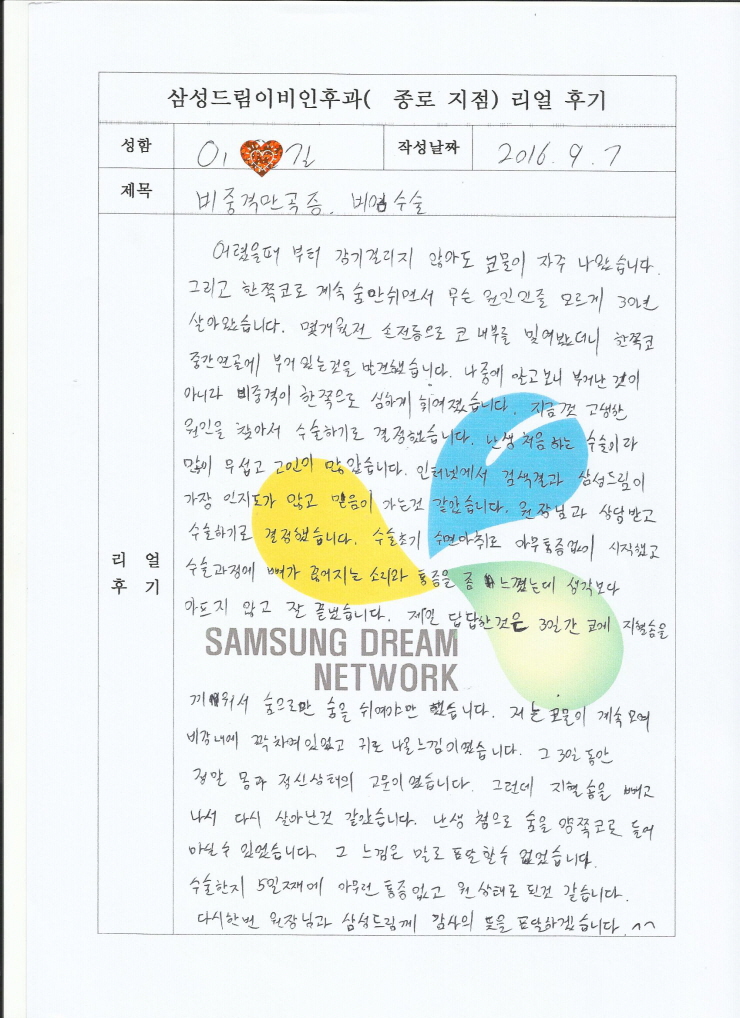 삼성드림이비인후과( 종로 지점) 리얼 후기
성함 이 길 작성날짜 2016. 9. 7
제목 비중격만곡증, 비염수술
리 얼
후 기
어렸을때 부터 감기걸리지 않아도 콧물이 자주 나왔습니다.
그리고 한쪽코로 계속 숨만쉬면서 무슨 원인인줄 모르게 30년
살아왔습니다. 몇개월전 손전등으로 코 내부를 빛여봤더니 한쪽코
중간연골에 부거있는것을 발견했습니다. 나중에 알고보니 부거난 것이
아니라 비중격이 한쪽으로 심하게 휘여졌습니다. 지금껏 고생한
원인을 찾아서 수술하기로 결정했습니다. 난생 처음 하는 수술이라
많이 무섭고 고민이 많았습니다. 인터넷에서 검색결과 삼성드림이
가장 인지도가 많고 믿음이 가는것 같았습니다. 원장님과 상담받고
수술하기로 결정했습니다. 수술초기 수면마취로 아무통증없이 시작했고
수술과정에 뼈가 끊어지는 소리와 통증을 좀 느꼈는데 생각보다
아프지 않고 잘 끝났습니다. 제일 답답한것은 3일간 코에 지혈솜을
SAMSUNG DREAM
NETWORK
끼워서 숨으로만 숨을 쉬여야만 했습니다. 저는 콧물이 계속 모여
비강내에 꽉차여있었고 귀로 나올느낌이였습니다. 그 3일 동안
정말 몸과 정신상태의 고문이였습니다. 그런데 지혈솜을 빼고
나서 다시 살아난것 같았습니다. 난생 첨으로 숨을 양쪽코로 들어
마실수 있었습니다. 그 느낌은 말로 표달할수 없었습니다.
수술한지 5일째에 아무런 통증없고 원상태로 된것 같습니다.
다시한번 원장님과 삼성드림께 감사의 뜻을 표달하겠습니다. ^^